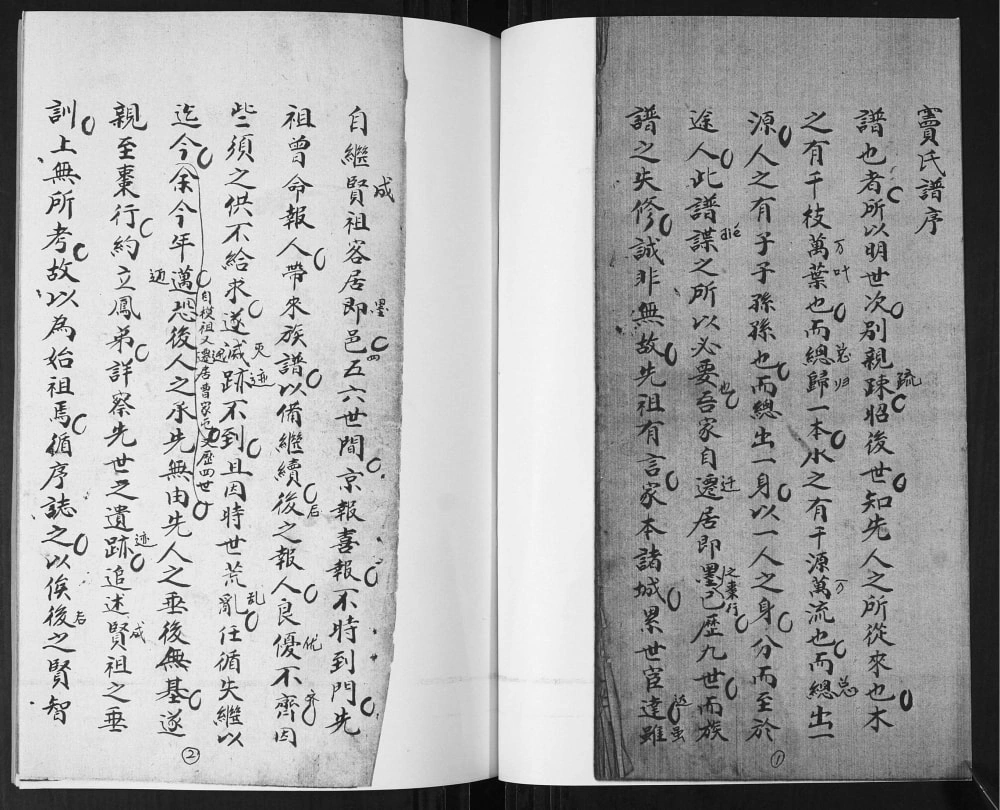 竇氏譜序
譜也者所以明世次別親疎昭後世知先人之所從來也木
疏
之有千枝萬葉也而總歸一本水之有千源萬流也而總出一
万叶
总归
万
总
源人之有子子孫孫也而總出一身以一人之身分而至於
途人此譜諜之所以必要吾家自遷居即墨已歷九世而族
dié
也
迁
之棗行
譜之失修誠非無故先祖有言家本諸城累世宦達雖
虽
①
自繼賢祖客居即邑五六世間京報喜報不時到門先
成
墨
四
祖曾命報人帶來族譜以備繼續後之報人良優不齊因
后
优
齐
些須之供不給求遂滅跡不到且因時世荒亂任循失繼以
灭迹
乱
迄今余今年邁恐後人之承先無由先人之垂後無基遂
迈
自授祖又遷居曹家屯又歷四世
親至棗行約立鳳弟詳察先世之遺跡追述賢祖之垂
迹
成
訓上無所考故以為始祖焉循序誌之以俟後之賢智
后
②